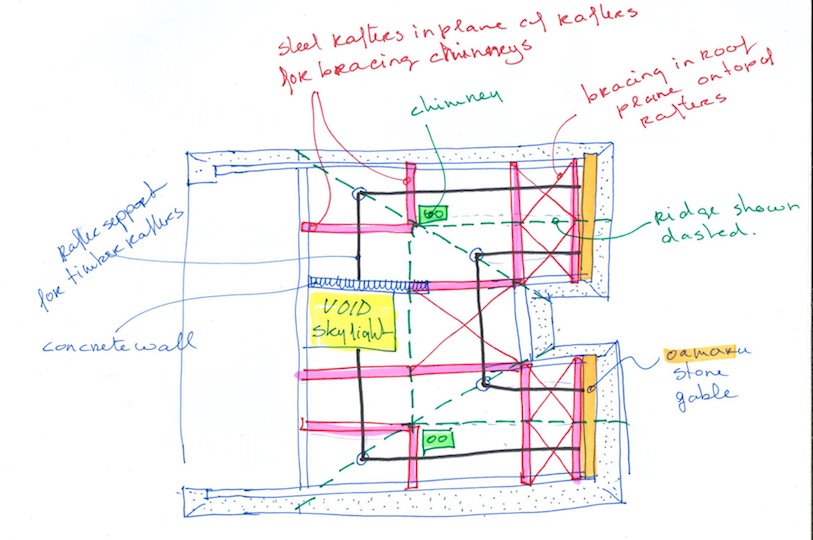 steel rafters in plane of rafters
for bracing chimneys
chimney
bracing in roof
plane on top of
rafters
rafter support
for timber rafters
ridge shown
dashed.
VOID
skylight
concrete wall
oamaru
stone
gable
00
00